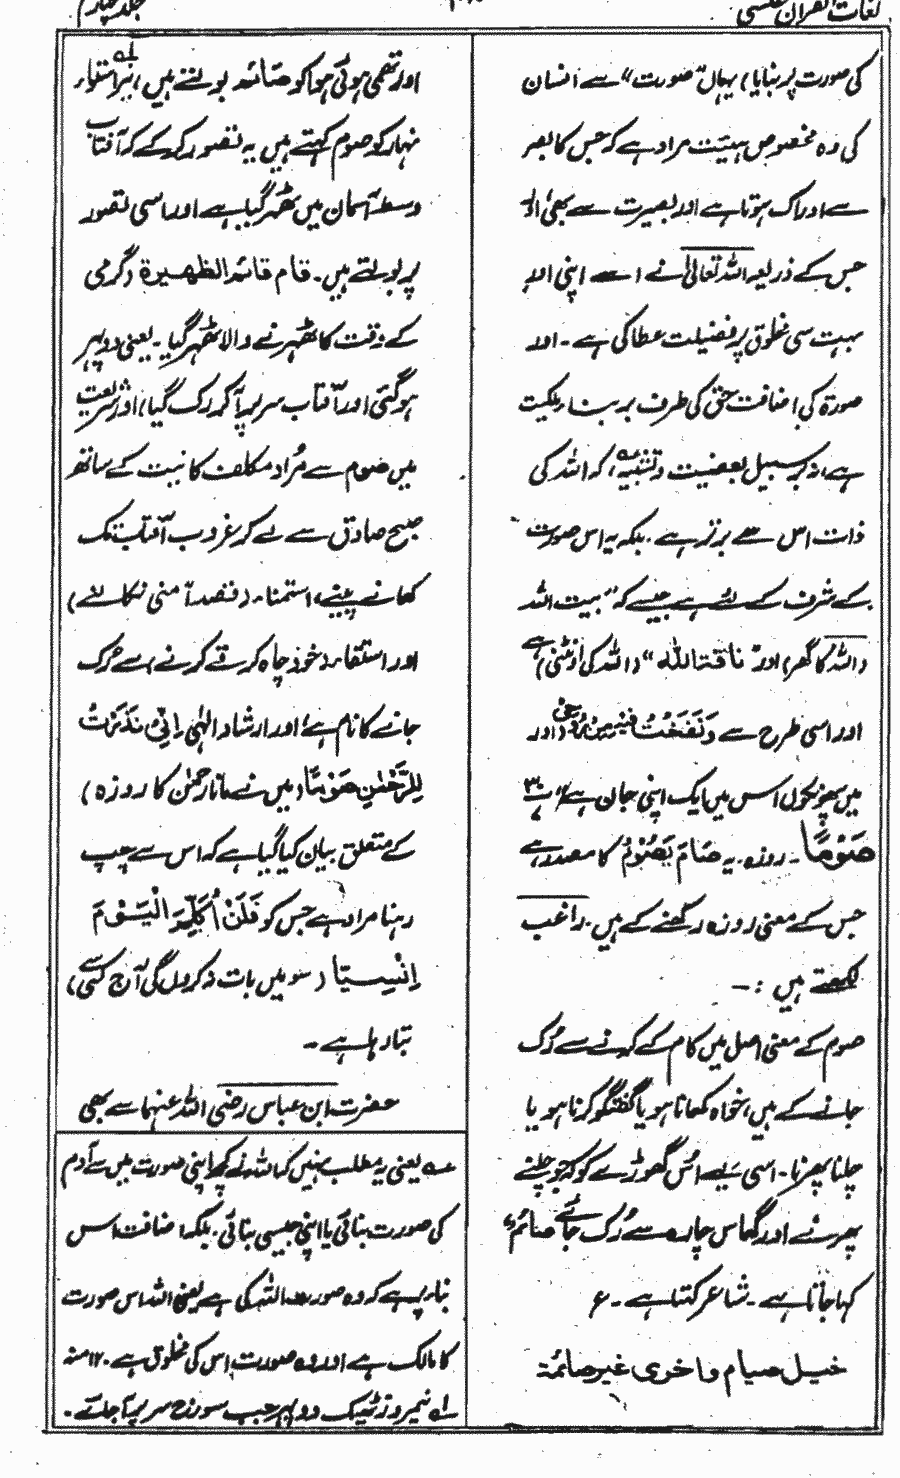 لغات القرآن
جلد چہارم
کی صورت پر بنایا) یہاں "صورت" سے انسان
کی وہ مخصوص ہیئت مراد ہے کہ جس کا بصر
سے ادراک ہوتا ہے اور بصیرت سے بھی اور
جس کے ذریعہ اللہ تعالیٰ نے اسے اپنی اور
بہت سی مخلوق پر فضیلت عطا کی ہے۔ اور
صورۃ کی اضافت حق کی طرف بر بنار ملکیت
ہے، نہ بر سبیل بعضیت و تشبیہ، کہ اللہ کی
ذات اس سے برتر ہے۔ بلکہ یہ اس صورت
کے شرف کے لئے ہے جیسے کہ "بیت اللہ
(اللہ کا گھر) اور" ناقۃ اللہ" (اللہ کی اونٹنی) ہے
اور اسی طرح سے وَنَفَخْتُ فِیْہِ مِنْ رُّوْحِیْ (اور
میں پھونکوں اس میں ایک اپنی جان ہے)
صَوْمًا۔ روزہ۔ یہ صَامَ یَصُوْمُ کا مصدر ہے
جس کے معنی روزہ رکھنے کے ہیں۔ راغب
لکھتے ہیں :-
صوم کے معنی اصل میں کام کے کرنے سے رُک
جانے کے ہیں، خواہ کھانا ہو یا گفتگو کرنا ہو یا
چلنا پھرنا۔ اسی لئے اس گھوڑے کو کہ جو چلنے
پھرنے اور گھاس چارہ سے رُک جائے صائم
کہا جاتا ہے۔ شاعر کہتا ہے۔ ع
خیل صیام و اخری غیر صائمۃ
اور تھمی ہوئی ہوا کو صائمہ بولتے ہیں، نیز استواء
نہار کو صوم کہتے ہیں یہ تصور کر کے کہ آفتاب
وسط آسمان میں ٹھہر گیا ہے اور اسی تصور
پر بولتے ہیں۔ قام قائم الظھیرۃ (گرمی
کے وقت کا ٹھہرنے والا ٹھہر گیا۔ یعنی دوپہر
ہوگئی اور آفتاب سر پر آ کر رک گیا) اور شریعت
میں صوم سے مُراد مکلف کا نیت کے ساتھ
صبح صادق سے لے کر غروب آفتاب تک
کھانے پینے، استمنا۔ (قصداً منی نکالنے)
اور استقاء (خود چاہ کر قے کرنے) سے رُک
جانے کا نام ہے اور ارشاد الٰہی اِنِّیْ نَذَرْتُ
لِلرَّحْمٰنِ صَوْمًا (میں نے مانا رحمٰن کا روزہ)
کے متعلق بیان کیا گیا ہے کہ اس سے چپ
رہنا مراد ہے جس کو فَلَنْ اُکَلِّمَ الْیَوْمَ
اِنْسِیًّا (سو میں بات نہ کروں گی آج کسی سے)
بتا رہا ہے۔
حضرت ابن عباس رضی اللہ عنہما سے بھی
عہ یعنی یہ مطلب نہیں کہ اللہ نے کچھ اپنی صورت میں سے آدم
کی صورت بنائی یا اپنی جیسی بنائی۔ بلکہ اضافت اس
بنا پر ہے کہ وہ صورت اللہ کی ہے یعنی اللہ اس صورت
کا مالک ہے اور وہ صورت اس کی مخلوق ہے۔ ۱۲ منہ
لہ نیمروز ٹھیک دوپہر جب سورج سر پر آ جائے۔